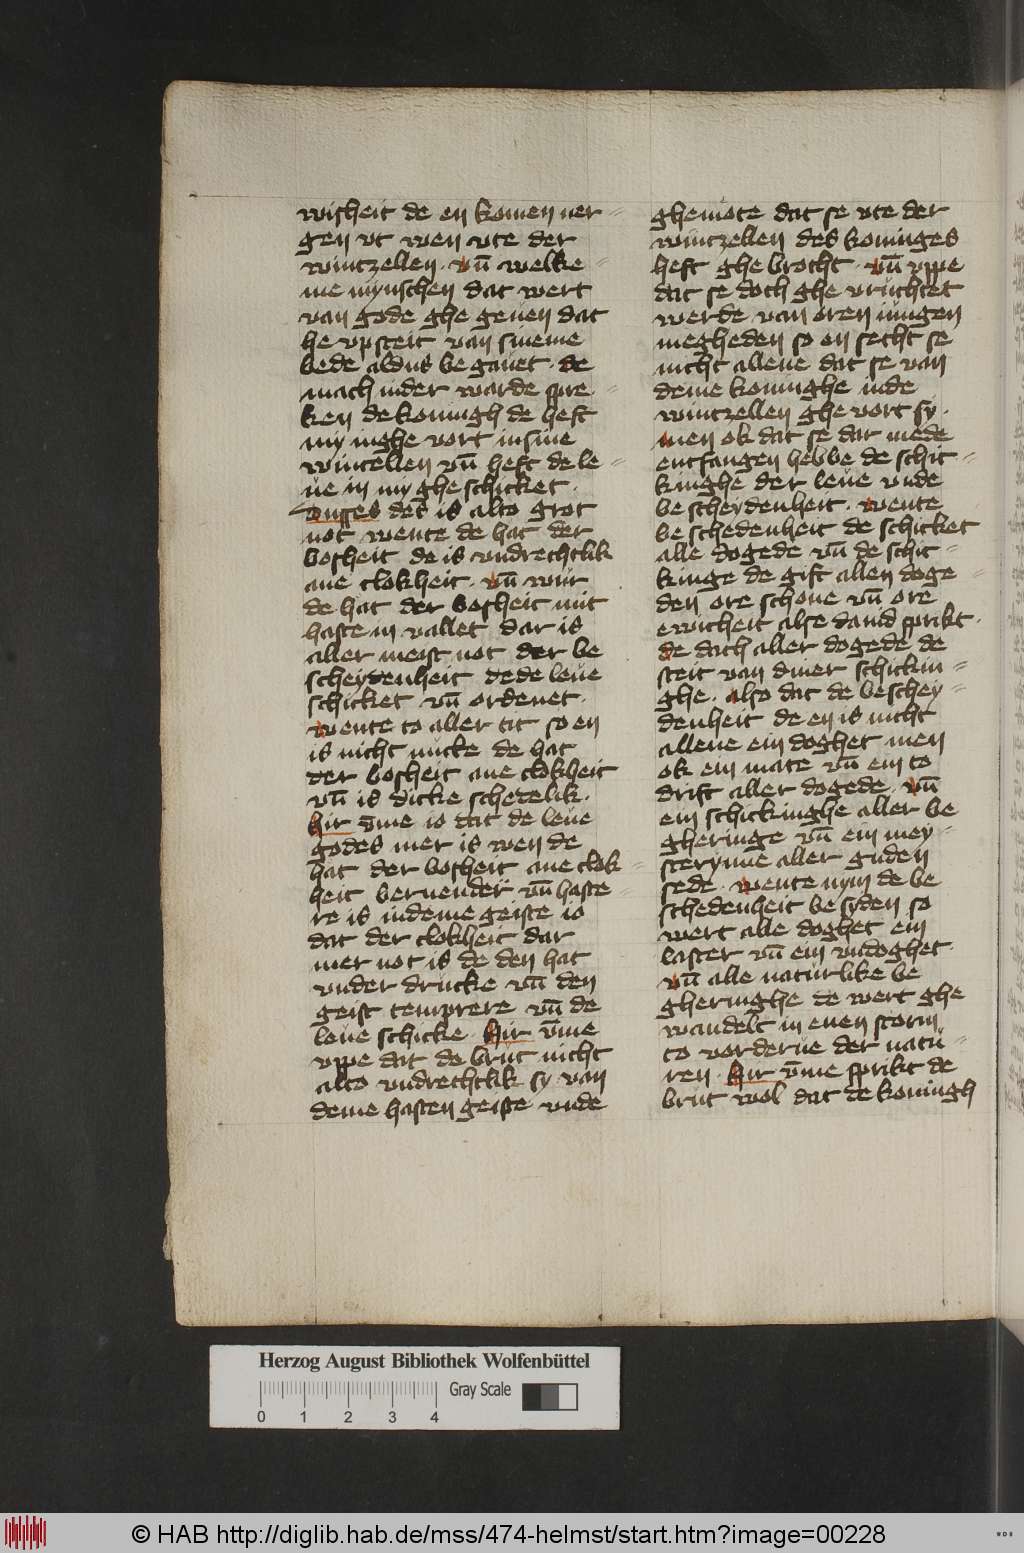 wisheit de en komen ner=
gen vt wen vte der
wintzellen · vn̄ welke=
me mynschen dat wert
van gode ghe geuen dat
he vpsteit van sineme
bede aldus be gauet · de
mach inder warde spre=
ken de koningh de heft
my inghe vort in sine
wincellen vn̄ heft de le=
ue in my ghe schicket ·
Dusses des is alto grot
not wente de hat der
bosheit de is vndrechtlik
ane clokheit · vn̄ wur
de hat der bosheit mit
haste in vallet dar is
aller meist not der be
scheydenheit de de leue
schicket vn̄ ordenet ·
wente to aller tit so en
is nicht nücke de hat
der bosheit ane clokheit
vn̄ is dicke schedelik ·
Hir v̄me io dat de leue
godes mer is wen de
hat der bosheit ane clok=
heit beruender vn̄ haste=
re is indeme geiste io
dat der clokheit dar
mer not is de den hat
vnder drucke vn̄ den
geist temprere vn̄ de
leue schicke · Hir v̄me
vppe dat de brut nicht
alto vndrechtlik sy van
deme hasten geiste vnde
ghemote dat se vte der
wintzellen des koninges
heft ghe brocht · vn̄ vppe
dat se doch ghe vruchtet
werde van oren iungen
megheden so en secht se
nicht allene dat se van
deme koninghe inde
wintzellen ghe vort sy ·
men ok dat se dar mede
entfangen hebbe de schic=
kinghe der leue vnde
be scheydenheit · wente
be schedenheit de schicket
alle dogede vn̄ de schic=
kinge de gift allen doge=
den ore schone vn̄ ore
ewicheit alse dauid sprikt ·
de dach aller dogede de
steit van diner schickin=
ghe · also dat de beschey=
denheit de en is nicht
allene ein doghet men
ok ein mate vn̄ ein to
drift aller dogede · vn̄
ein schickinghe aller be
gheringe vn̄ ein mey=
sterynne aller guden
sede · wente nym de be
schedenheit be syden so
wert alle doghet ein
laster vn̄ ein vndoghet ·
vn̄ alle naturlike be
gheringhe de wert ghe
wandelt in enen storm
to vorderue der natu=
ren · Hir v̄me sprikt de
brut wol dat de koningh
Herzog August Bibliothek Wolfenbüttel
Gray Scale
0 1 2 3 4
© HAB http://diglib.hab.de/mss/474-helmst/start.htm?image=00228